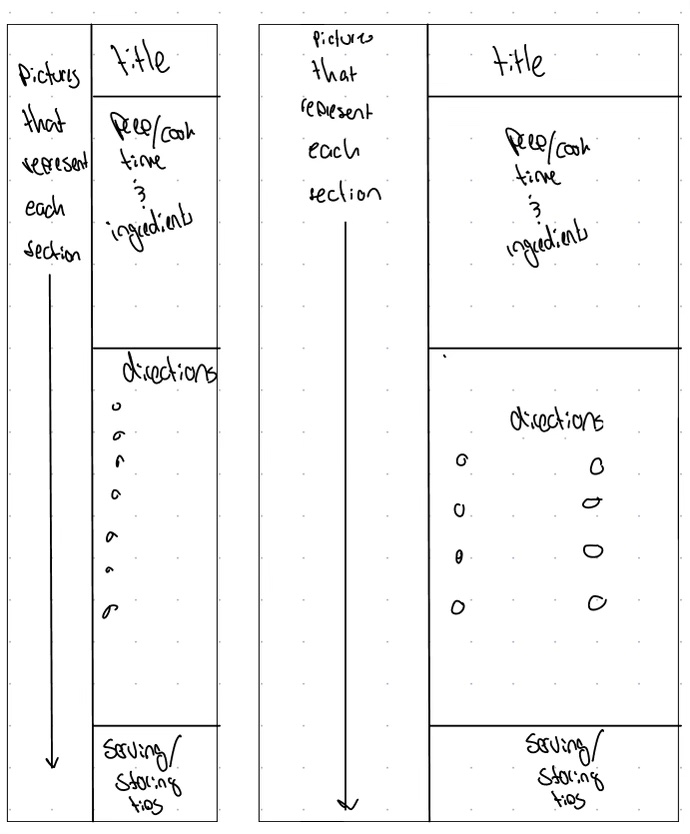 Pictures
that
represent
each
section
title
prep/cook
time
&
ingredients
directions
serving/
storing
tips
Pictures
that
represent
each
section
title
prep/cook
time
&
ingredients
directions
serving/
storing
tips